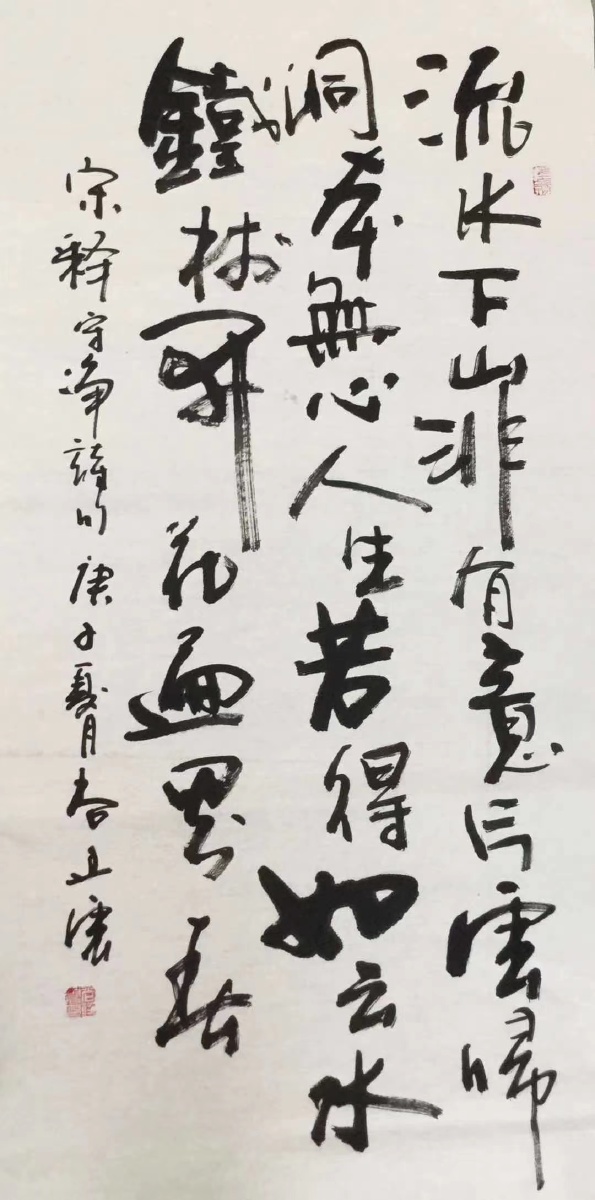 流水下山非有意片雲歸
洞本無心人生若得如云水
鐵树開花遍界春
宋释守净詩句庚子夏月春正